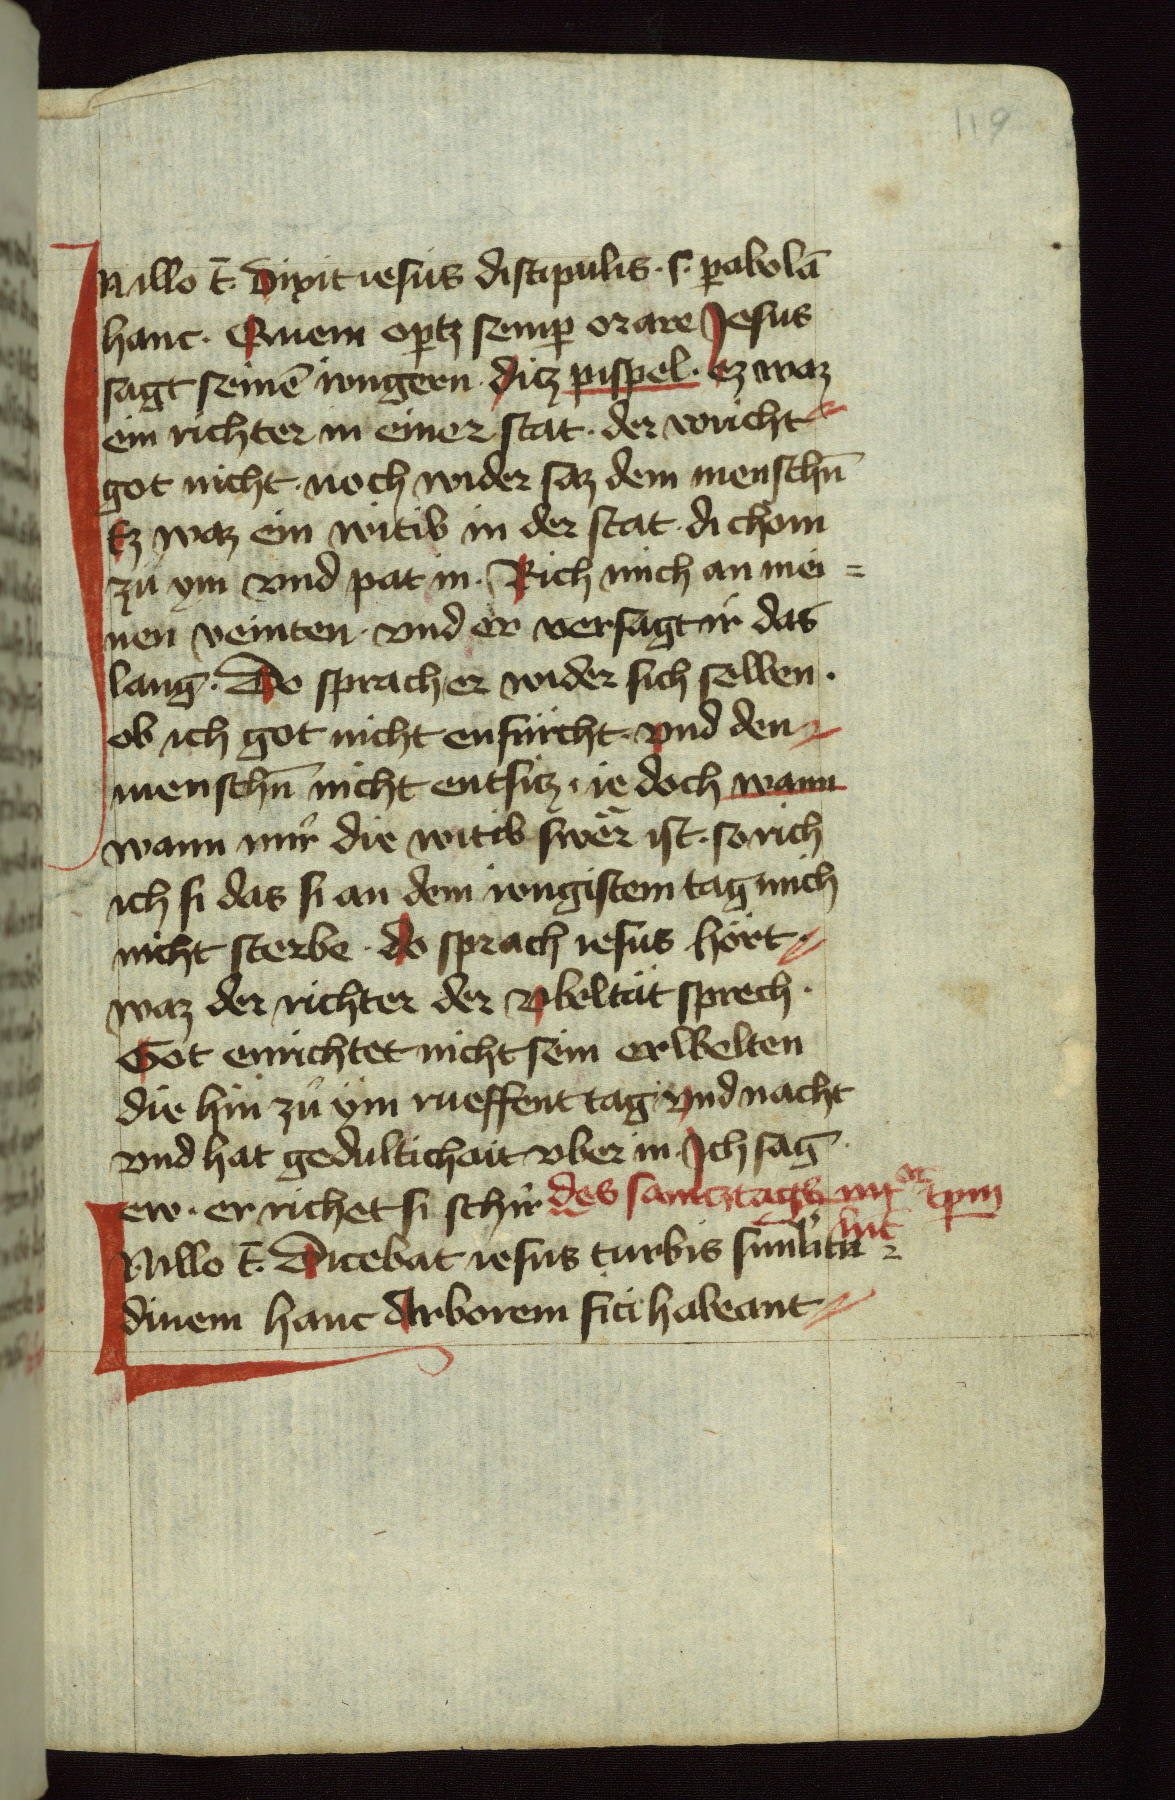 119
IN illo t̄. Dixit iesus discipulis. s. ꝑabolā
hanc. Quem oꝑtꝫ semꝑ orare Jesus
sagt seinē iungern. ditz pispel. ez waz
ein richter in einer stat. der voricht
got nicht. noch wider saz dem menschn̄
Ez waz ein witib in der stat. di chom
zu ym vnd pat in. Rich mich an mei=
nen veinten. vnd er versagt ir das
lang. Do sprach er wider sich selben.
ob ich got nicht enfürcht. vnd den
menschn̄ nicht entsitz. ie doch wann
wann mir die witib swër ist. so rich
ich si das si an dem iungistem tag mich
nicht sterbe. do sprach iesus hört.
waz der richter der vbeltät sprech.
Got enrichtet nicht sein erwelten
die hin zu ym rueffent tag vnd nacht
vnd hat gedultichait vber in. Ich sag
ew. er richet si schir des samcztags
IN illo t̄. Dicebat iesus turbis similitu
dinem hanc Arborem fici habeant